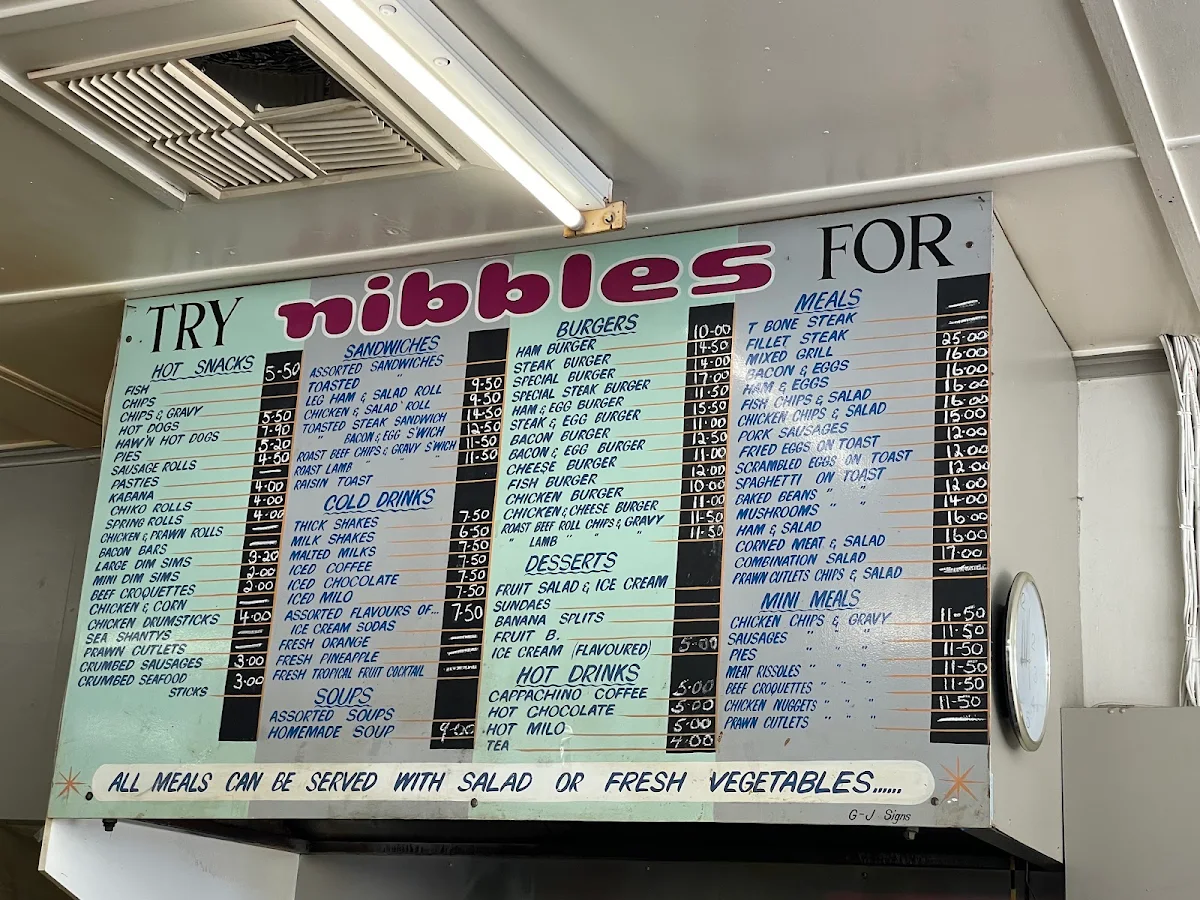 TRY nibbles FOR
HOT SNACKS
FISH
CHIPS
CHIPS & GRAVY
HOT DOGS
HAW'N HOT DOGS
PIES
SAUSAGE ROLLS
PASTIES
KABANA
CHIKO ROLLS
SPRING ROLLS
CHICKEN & PRAWN ROLLS
BACON BARS
LARGE DIM SIMS
MINI DIM SIMS
BEEF CROQUETTES
CHICKEN & CORN
CHICKEN DRUMSTICKS
SEA SHANTYS
PRAWN CUTLETS
CRUMBED SAUSAGES
CRUMBED SEAFOOD
STICKS
5-50
5.50
7-90
5-20
4-50
4.00
4.00
3-20
2-00
2.00
4.00
3.00
3.00
SANDWICHES
ASSORTED SANDWICHES
TOASTED "
LEG HAM & SALAD ROLL
CHICKEN & SALAD ROLL
TOASTED STEAK SANDWICH
" BACON & EGG S'WICH
ROAST BEEF CHIPS & GRAVY S'WICH
ROAST LAMB " " "
RAISIN TOAST
9-50
9-50
12-50
11-50
11-50
COLD DRINKS
THICK SHAKES
MILK SHAKES
MALTED MILKS
ICED COFFEE
ICED CHOCOLATE
ICED MILO
ASSORTED FLAVOURS OF...
ICE CREAM SODAS
FRESH ORANGE
FRESH PINEAPPLE
FRESH TROPICAL FRUIT COCKTAIL
7-50
6-50
7-50
7-50
7-50
7-50
7-50
SOUPS
ASSORTED SOUPS
HOMEMADE SOUP
9.00
BURGERS
HAM BURGER
STEAK BURGER
SPECIAL BURGER
SPECIAL STEAK BURGER
HAM & EGG BURGER
STEAK & EGG BURGER
BACON BURGER
BACON & EGG BURGER
CHEESE BURGER
FISH BURGER
CHICKEN BURGER
CHICKEN & CHEESE BURGER
ROAST BEEF ROLL CHIPS & GRAVY
" LAMB " " "
10-00
14-50
14-00
17-00
11-50
15-50
11-00
12-50
11-00
12-00
10-00
11-00
11-50
11-50
DESSERTS
FRUIT SALAD & ICE CREAM
SUNDAES
BANANA SPLITS
FRUIT B.
ICE CREAM (FLAVOURED)
5-00
HOT DRINKS
CAPPACHINO COFFEE
HOT CHOCOLATE
HOT MILO
TEA
5.00
5.00
5.00
4.00
MEALS
T BONE STEAK
FILLET STEAK
MIXED GRILL
BACON & EGGS
HAM & EGGS
FISH CHIPS & SALAD
CHICKEN CHIPS & SALAD
PORK SAUSAGES
FRIED EGGS ON TOAST
SCRAMBLED EGGS ON TOAST
SPAGHETTI ON TOAST
BAKED BEANS " "
MUSHROOMS " "
HAM & SALAD
CORNED MEAT & SALAD
COMBINATION SALAD
PRAWN CUTLETS CHIPS & SALAD
25-00
16-00
16-00
16-00
16-00
15-00
12-00
12-00
12-00
12-00
14-00
16-00
16-00
17-00
MINI MEALS
CHICKEN CHIPS & GRAVY
SAUSAGES " " "
PIES " " "
MEAT RISSOLES " " "
BEEF CROQUETTES " " "
CHICKEN NUGGETS " " "
PRAWN CUTLETS " " "
11-50
11-50
11-50
11-50
11-50
11-50
ALL MEALS CAN BE SERVED WITH SALAD OR FRESH VEGETABLES......
G-J Signs